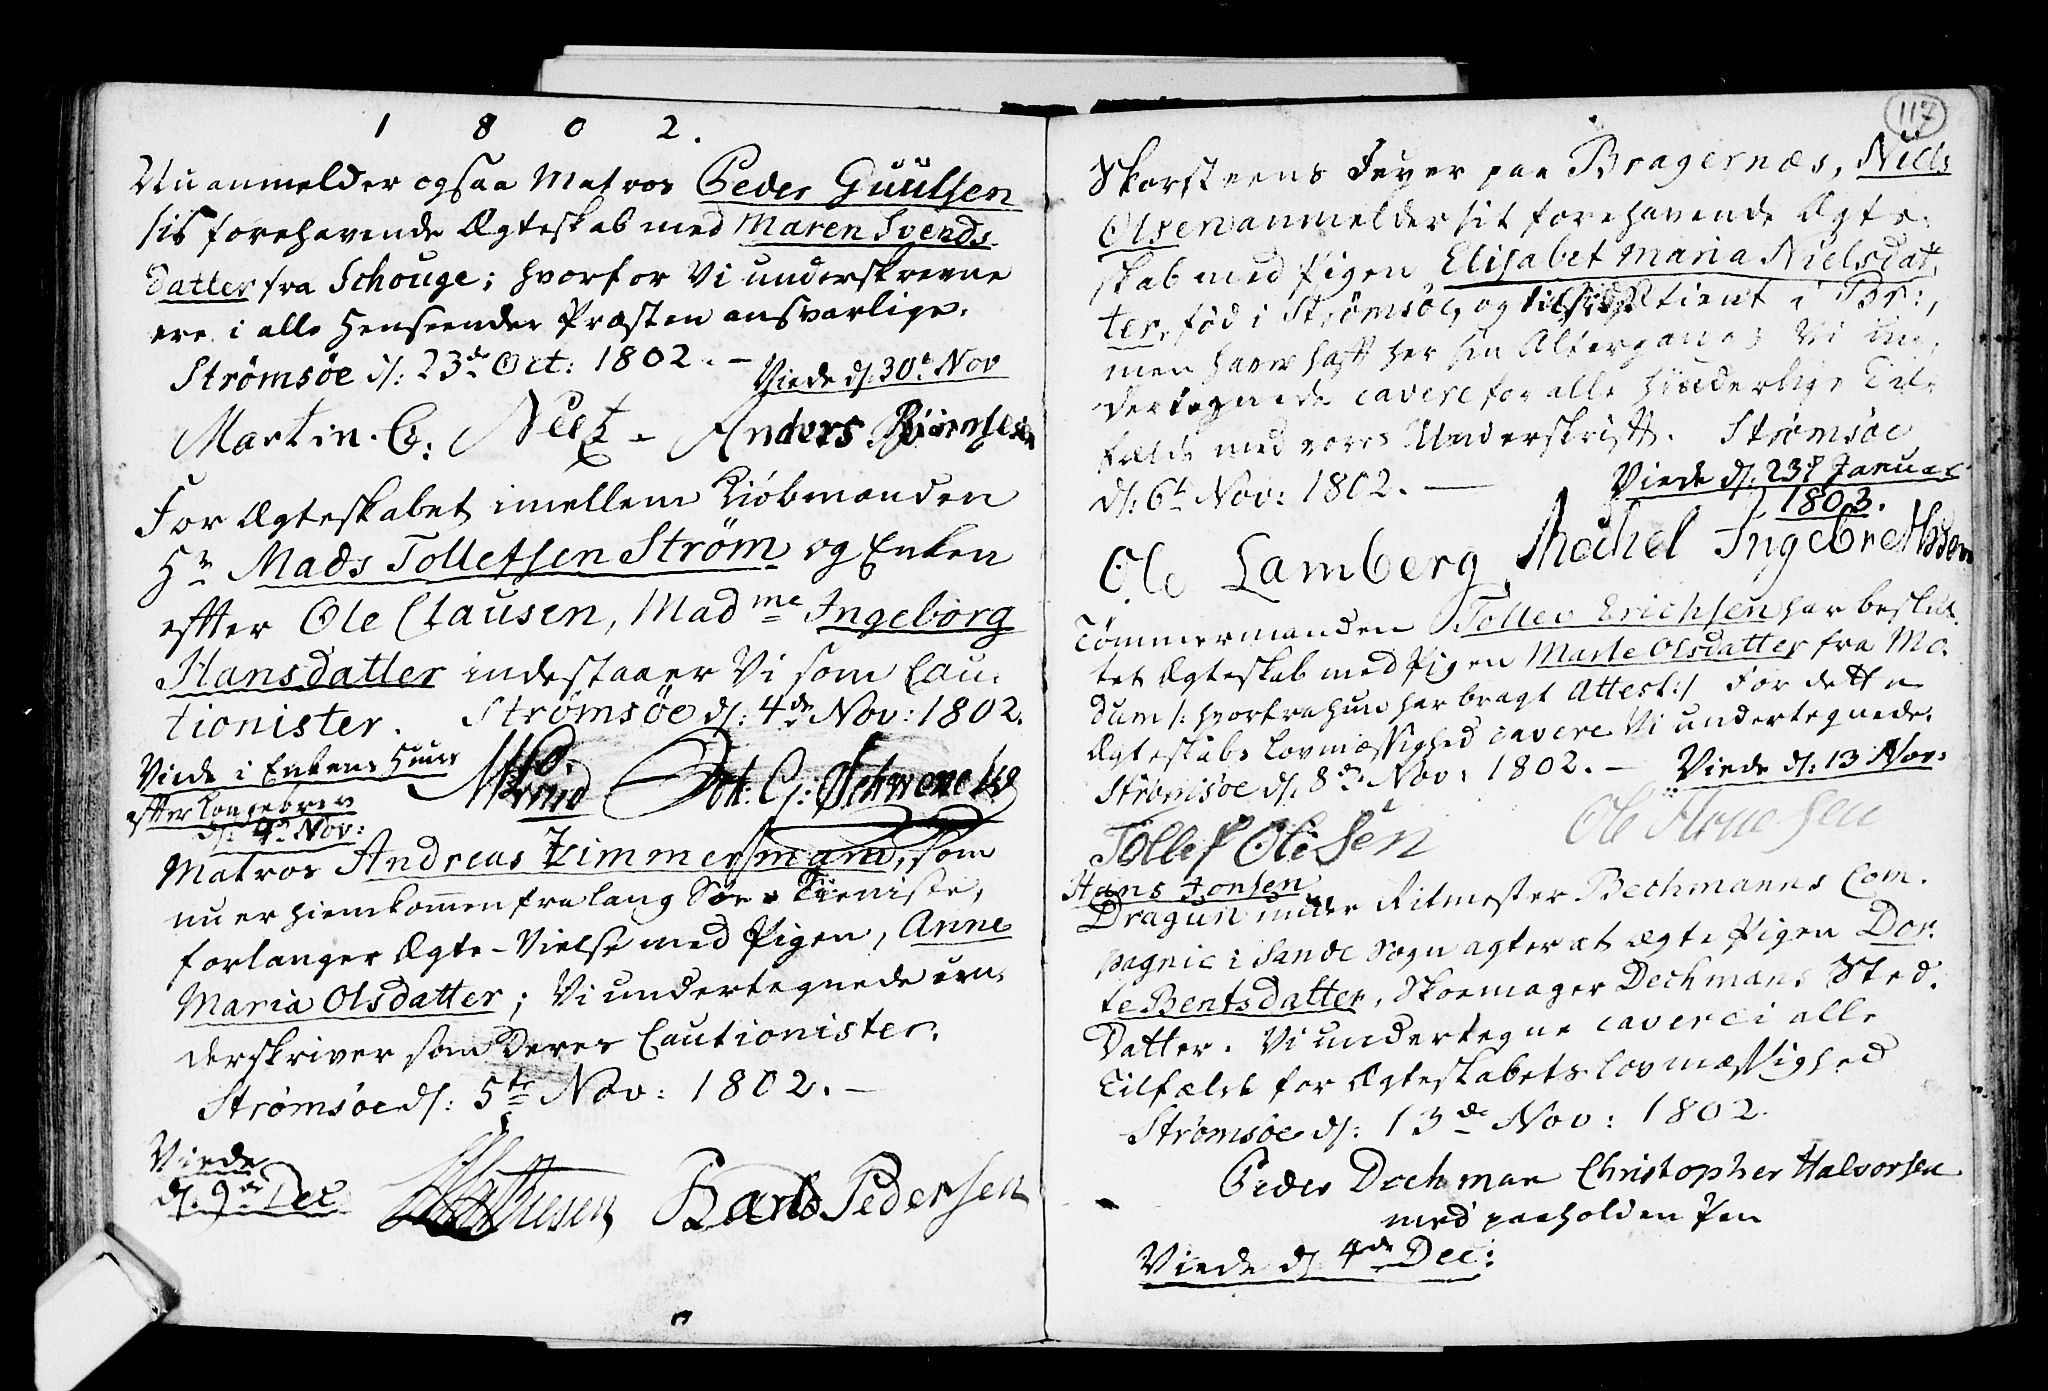 1 8 0 2.
Nu anmelder ogsaa Matros Peder Guulsen
sit forehavende Ægteskab med Maren Svends
datter fra Schouge; hvorfor Vi underskrevne
ere i alle Henseender Præsten ansvarlige.
Strømsøe d: 23de Oct: 1802. —
Viede d. 30te Nov
Martin. C: Anders Biørnsen
For Ægteskabet imellem Kiøbmanden
Hr Mads Tollefsen Strøm og Enken
efter Ole Clausen, Madme Ingeborg
Hansdatter indestaaer Vi som Cau-
tionister. Strømsøe d: 4de Nov: 1802.
Viede i Enkens Huus
efter Kongebrev
d: 4de Nov:
Joh: G: Schwencke
Matros Andreas Zimmermand, som
nu er hiemkommen fra lang Søe-Tieniste,
forlanger Ægte-Vielse med Pigen, Anne
Maria Olsdatter; Vi undertegnede un-
derskriver som Deres Cautionister.
Strømsøe d: 5te Nov: 1802. —
Viede
d. 9de Dec
Mathiesen Pedersen
117
Skorsteens Feyer paa Bragernæs, Niels
Olsen anmelder sit forehavende Ægte-
skab med Pigen Elisabet Maria Nielsdat-
ter, født i Strømsøe, og tient i Br:,
men haver haft her sin Altergang; Vi un-
dertegnede cavere for alle hinderlige Til-
fælde med vores Underskrift. Strømsøe
d: 6te Nov: 1802. —
Viede d. 23de Januar
1803.
Ole Lamberg Mechel Ingebrethsen
Tømmermanden Tollev Erichsen har beslut-
tet Ægteskab med Pigen Marte Olsdatter fra Mo-
dum /: hvorfra hun har bragt Attest:/ For dette
Ægteskabs Lovmæssighed cavere Vi undertegnede.
Strømsøe d: 8de Nov: 1802. — Viede d: 13 Nov:
Tollef Olesen Ole Arnesen
Hans Jonsen
Dragun under Ritmester Bechmanns Com-
pagnie i Sande Sogn agter at ægte Pigen Dor-
te Bentsdatter, Skoemager Dechmans Sted-
Datter. Vi undertegne cavere i alle
Tilfælde for Ægteskabets Lovmæssighed
Strømsøe d: 13de Nov: 1802.
Peder Dechman Christopher Halvorsen
med paaholden Pen
Viede d. 4de Dec: